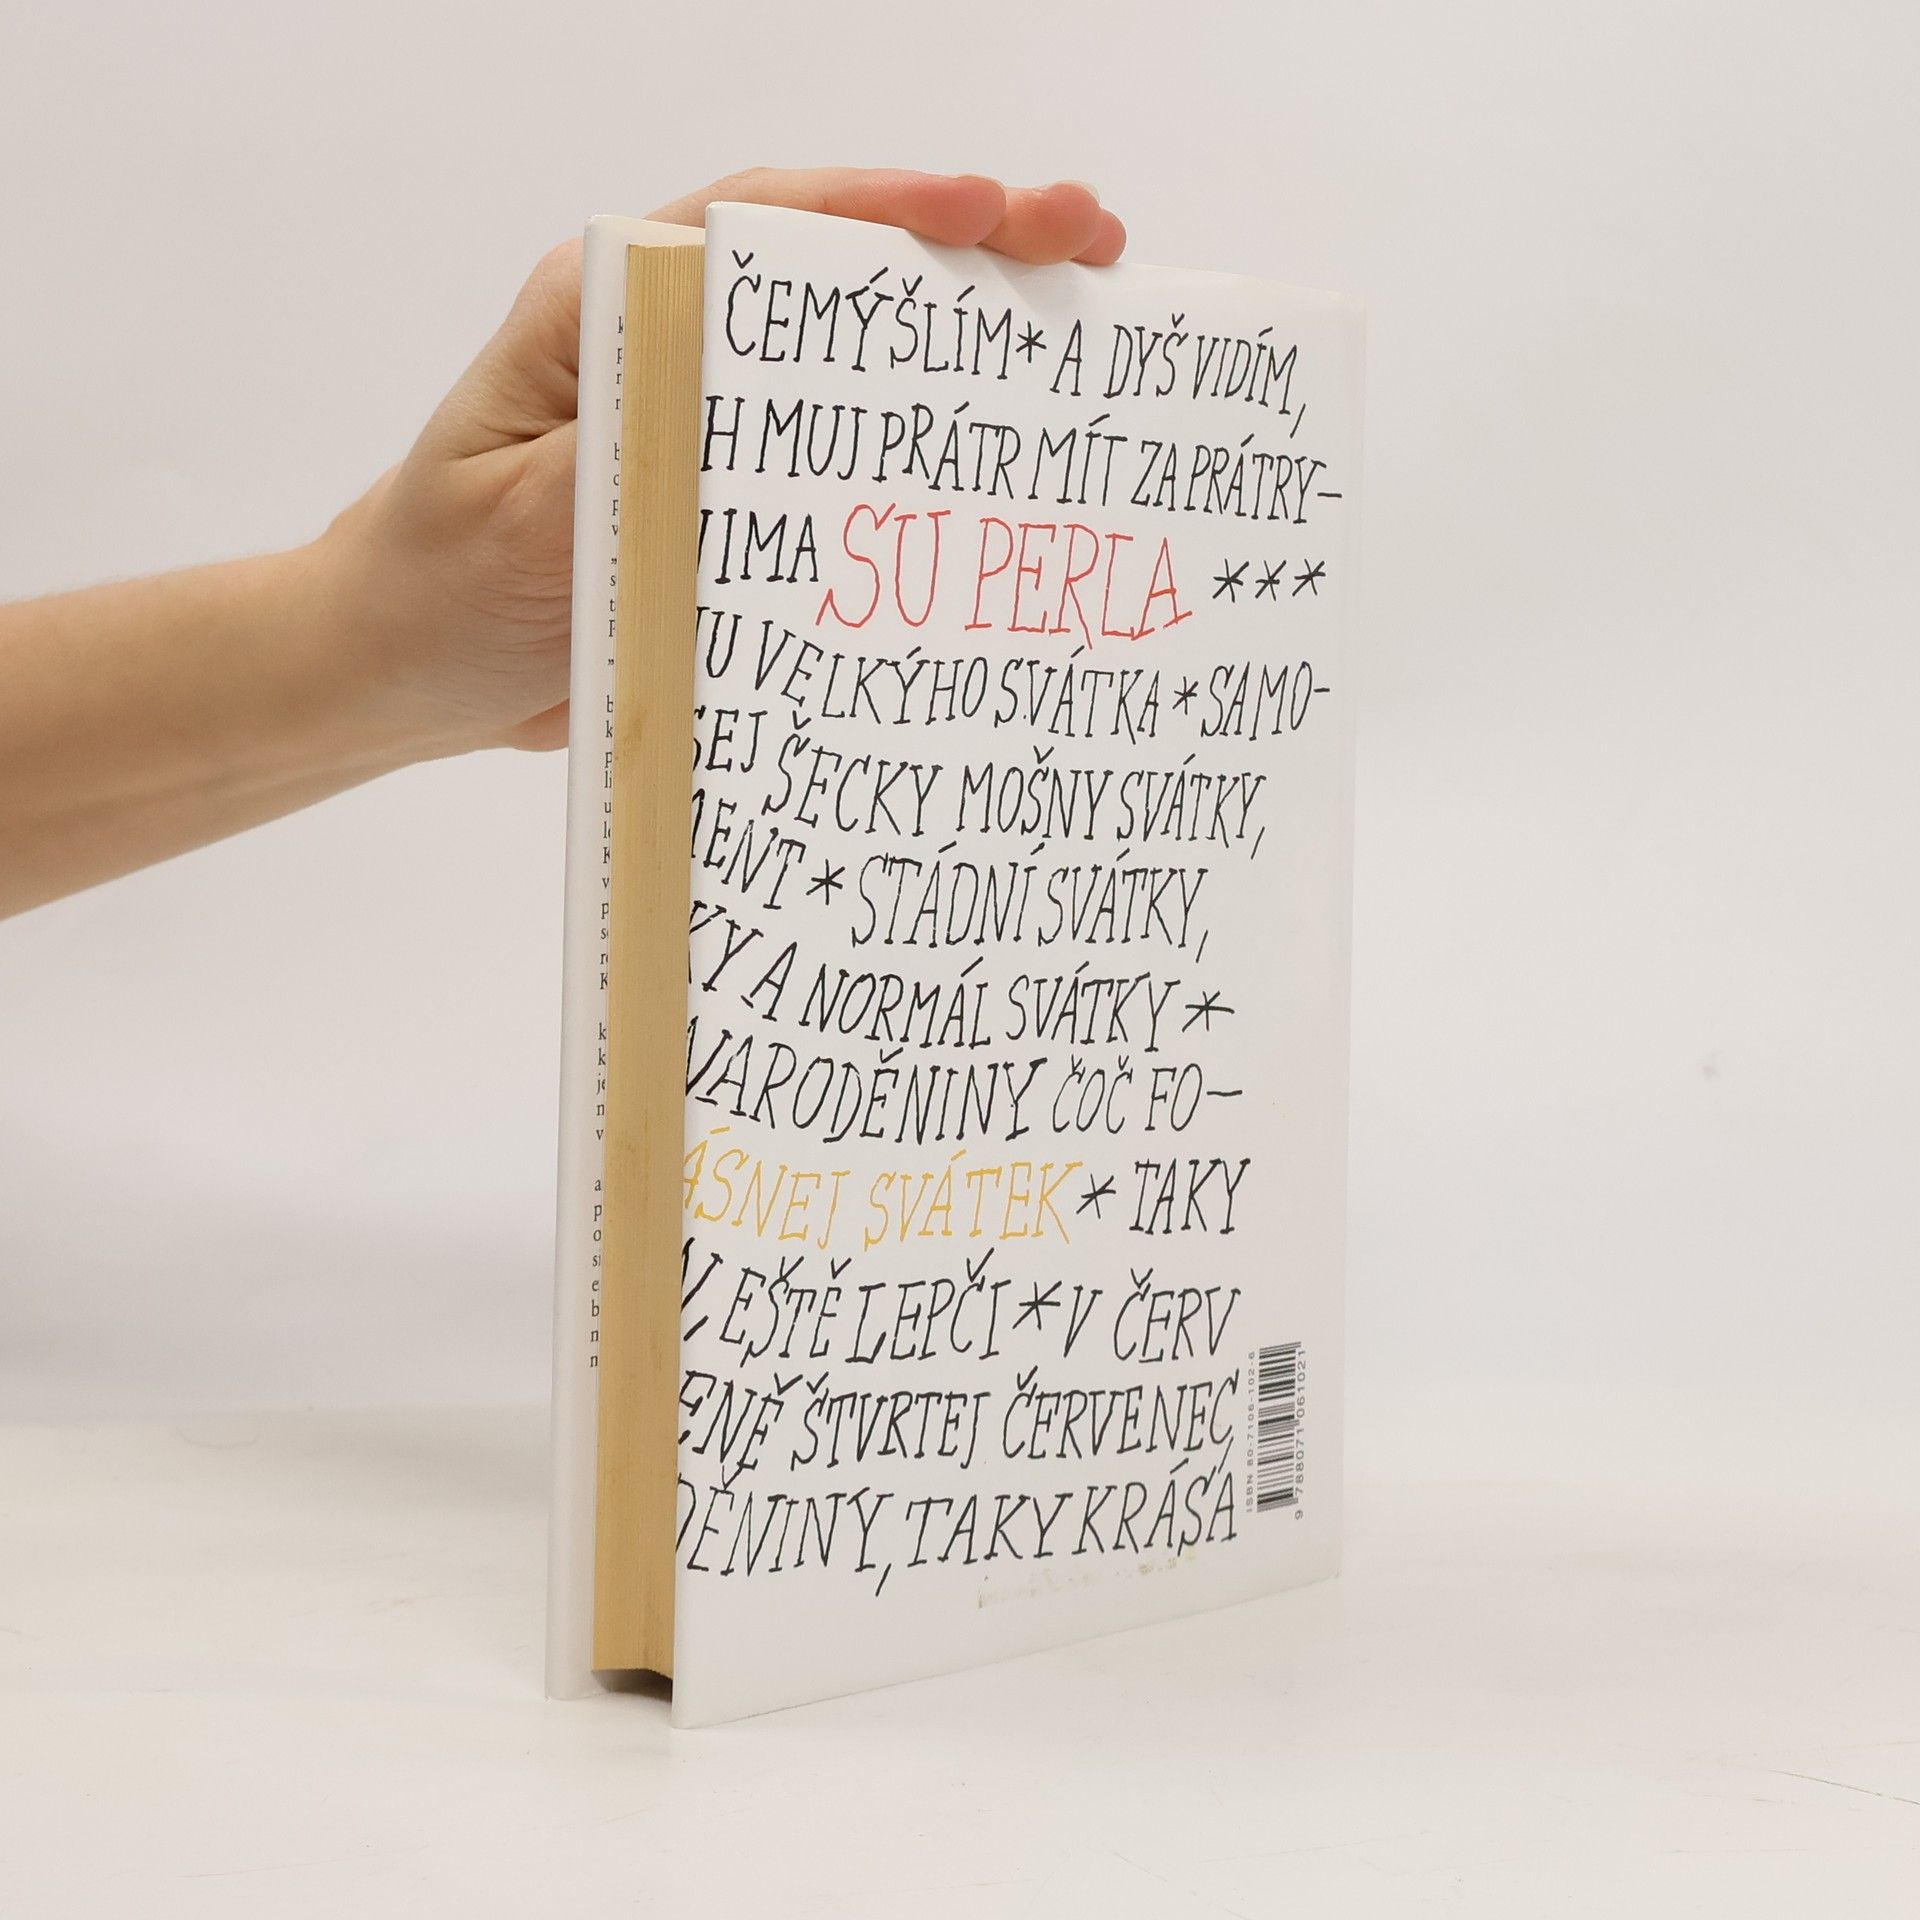 ČEMÝŠLÍM * A DYŠ VIDÍM,
H MUJ PRÁTR MÍT ZA PRÁTRY-
IMA SU PERLA ***
U VELKÝHO SVÁTKA * SAMO-
SEJ ŠECKY MOŠNY SVÁTKY,
MENT * STÁDNÍ SVÁTKY,
KY A NORMÁL SVÁTKY *
NARODĚNINY ČOČ FO-
ÁSNEJ SVÁTEK * TAKY
, EŠTĚ LEPČI * V ČERV
ENĚ ŠTVRTEJ ČERVENEC,
DĚNINY, TAKY KRÁSA
ISBN 80-7106-102-6
9 788071 061021